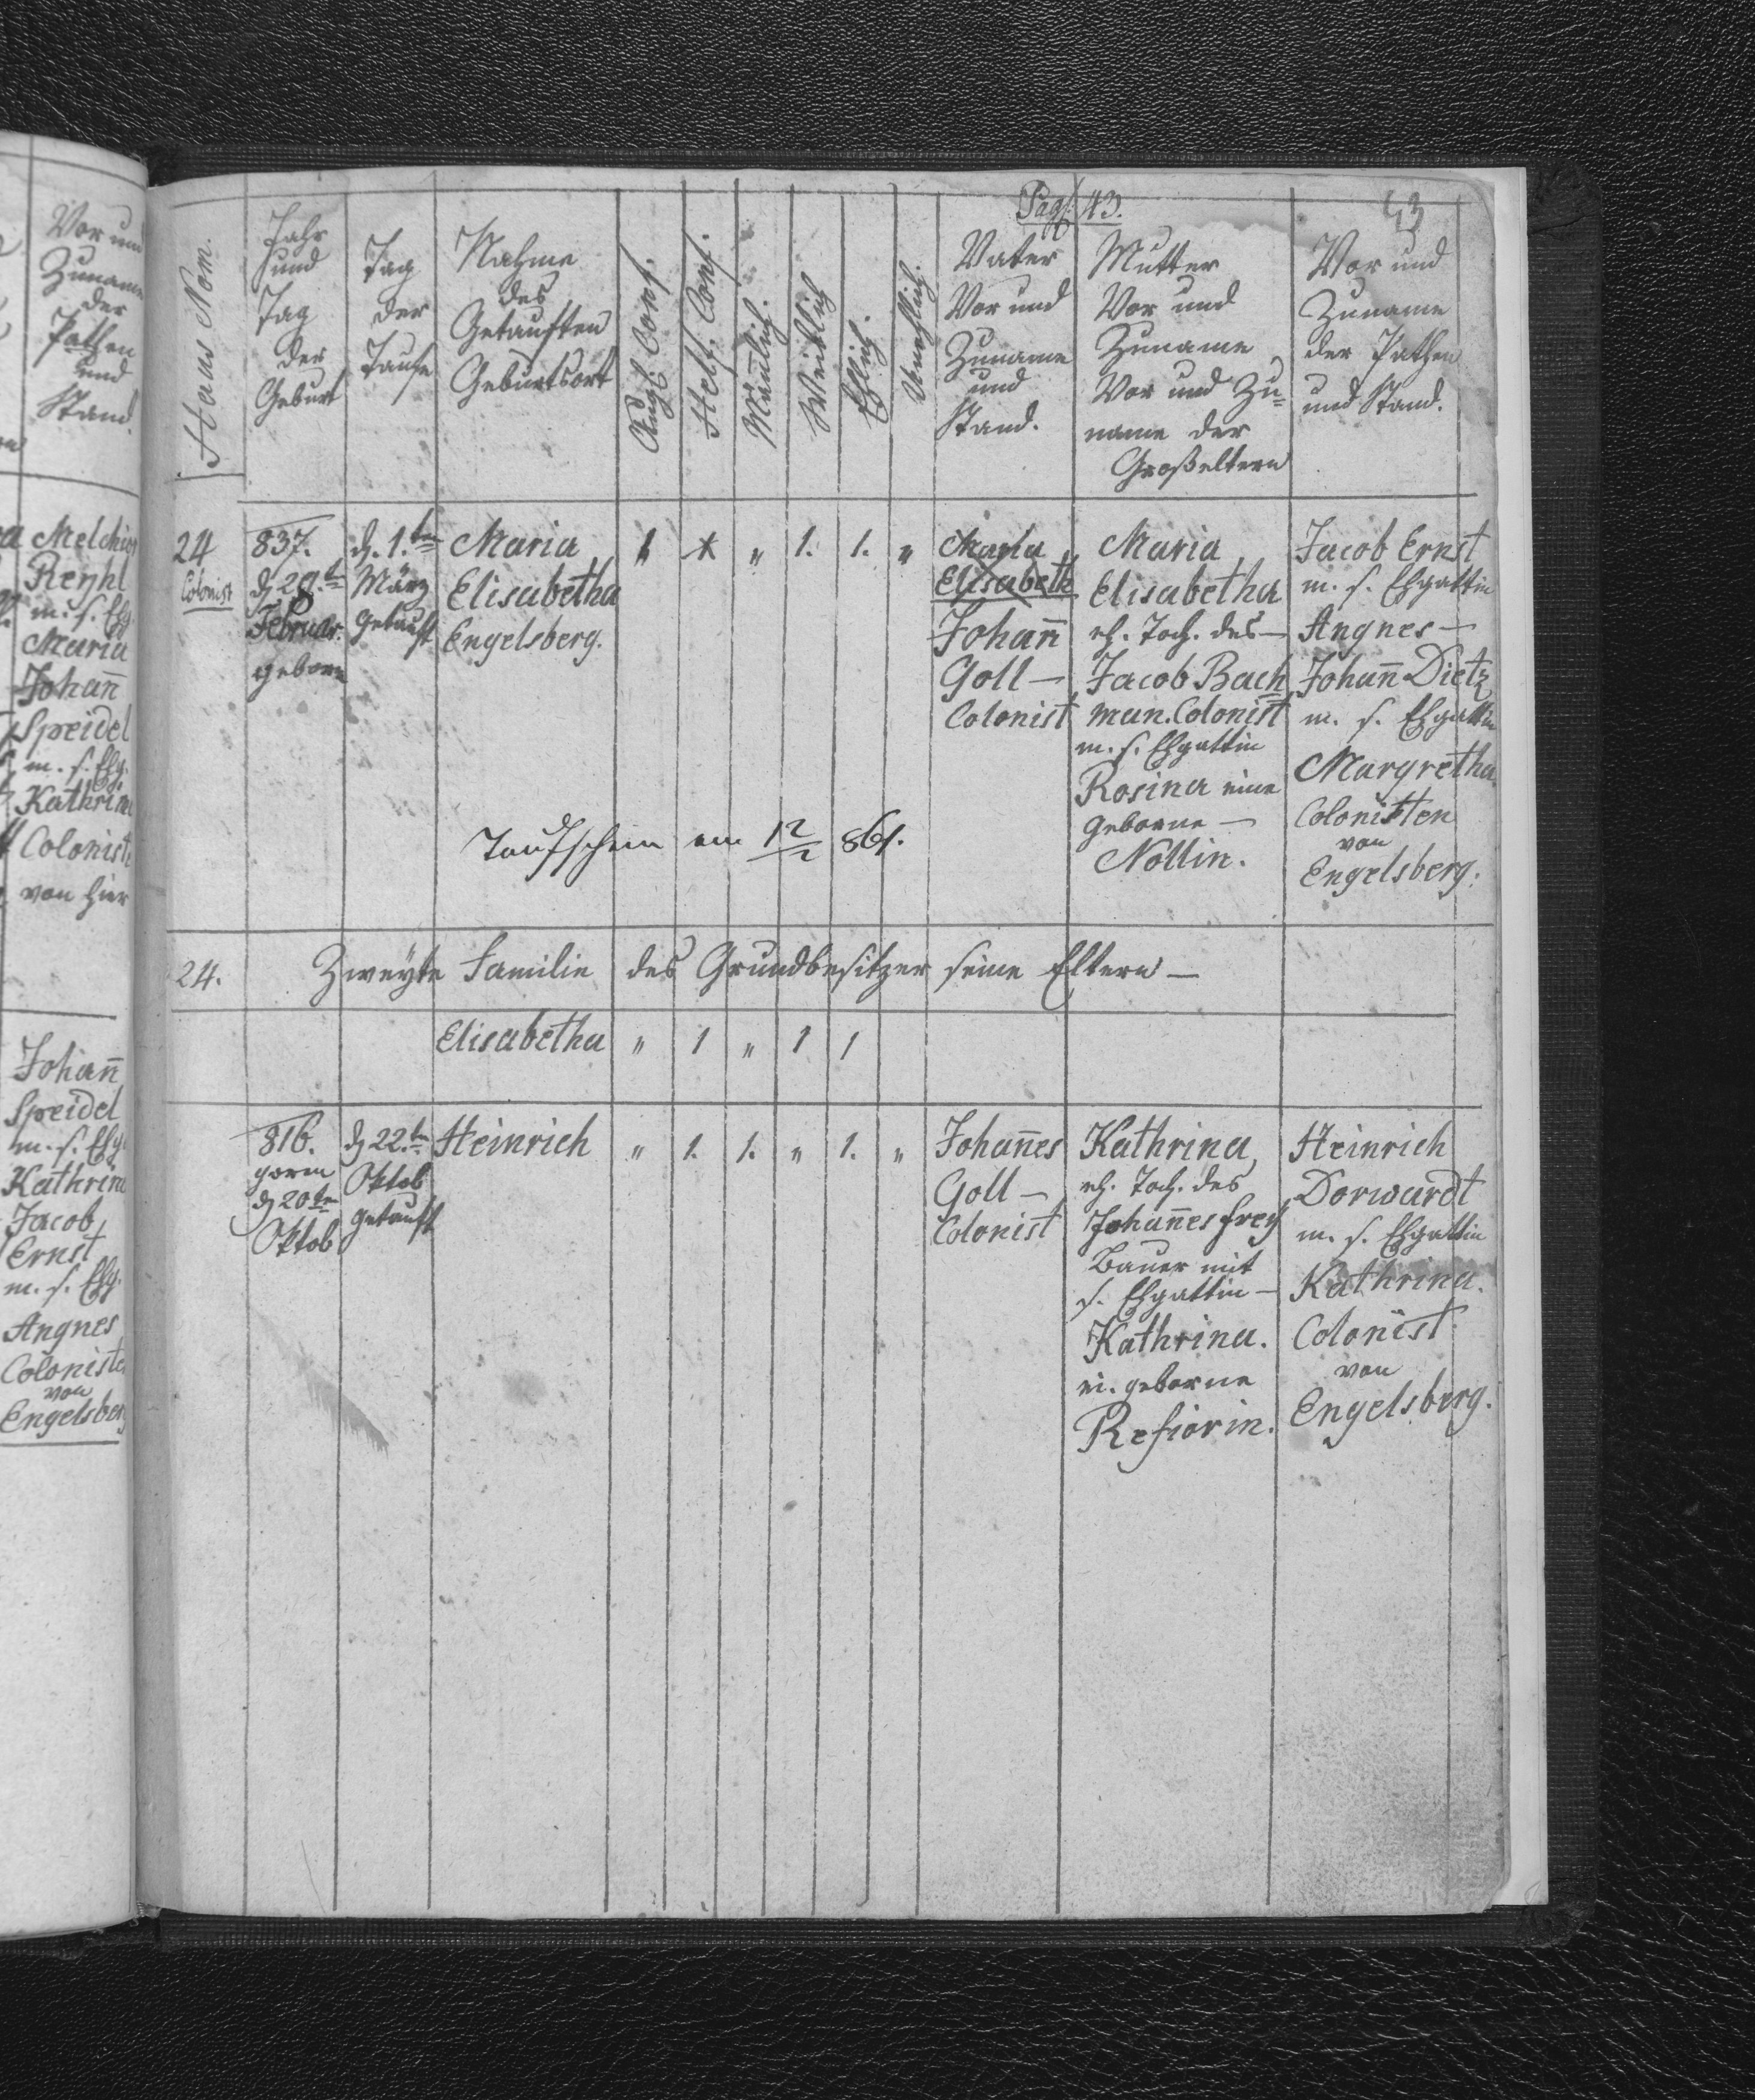 Vor und
Zuname
der
Pathen
und
Stand.
Melchior
Reyhl
m. s. Ehg.
Maria
Johañ
Speidel
m. s. Ehg.
Kathrina
Coloniste
von hier
Johañ
Speidel
m. s. Ehg
Kathrina
Jacob
Ernst
m. s. Ehg.
Angnes
Coloniste
von
Engelsberg
Pag: 43.
43
Haus Nom.
Jahr
und
Tag
der
Geburt
Tag
der
Taufe
Nahme
des
Getauften
Geburtsort
Augs. Conf.
Helf. Conf.
Mänlich.
Weiblich
Ehlich.
Unehlich.
Vater
Vor und
Zuname
und
Stand.
Mutter
Vor und
Zuname
Vor und Zu=
name der
Großeltern
Vor und
Zuname
der Pathen
und Stand.
24
Colonist
837.
d. 28.ten
Februar.
geborn
d. 1.ten
März
getauft
Maria
Elisabetha
Engelsberg.
1 " 1. 1. "
Maria
Elisabeth
Johañ
Goll —
Colonist
Maria
Elisabetha
eh. Toch. des —
Jacob Bach
man. Colonist
m. s. Ehgattin
Rosina eine
geborne —
Nollin.
Jacob Ernst
m. s. Ehgattin
Angnes —
Johañ Dietz
m. s. Ehgattin
Margretha
Colonisten
von
Engelsberg.
Taufschein am 12/2 861.
24. Zweyte Familie des Grundbesitzer seine Eltern —
Elisabetha " 1 " 1 1
816.
gorn
d 20ten
Oktob
d 22.ten
Oktob
getauft
Heinrich " 1. 1. " 1. "
Johañes
Goll —
Colonist
Kathrina
eh. Toch. des
Johañes Frey
Bauer mit
s. Ehgattin —
Kathrina.
ei. geborne
Refiorin.
Heinrich
Dorwardt
m. s. Ehgattin
Kathrina.
Colonist
von
Engelsberg.